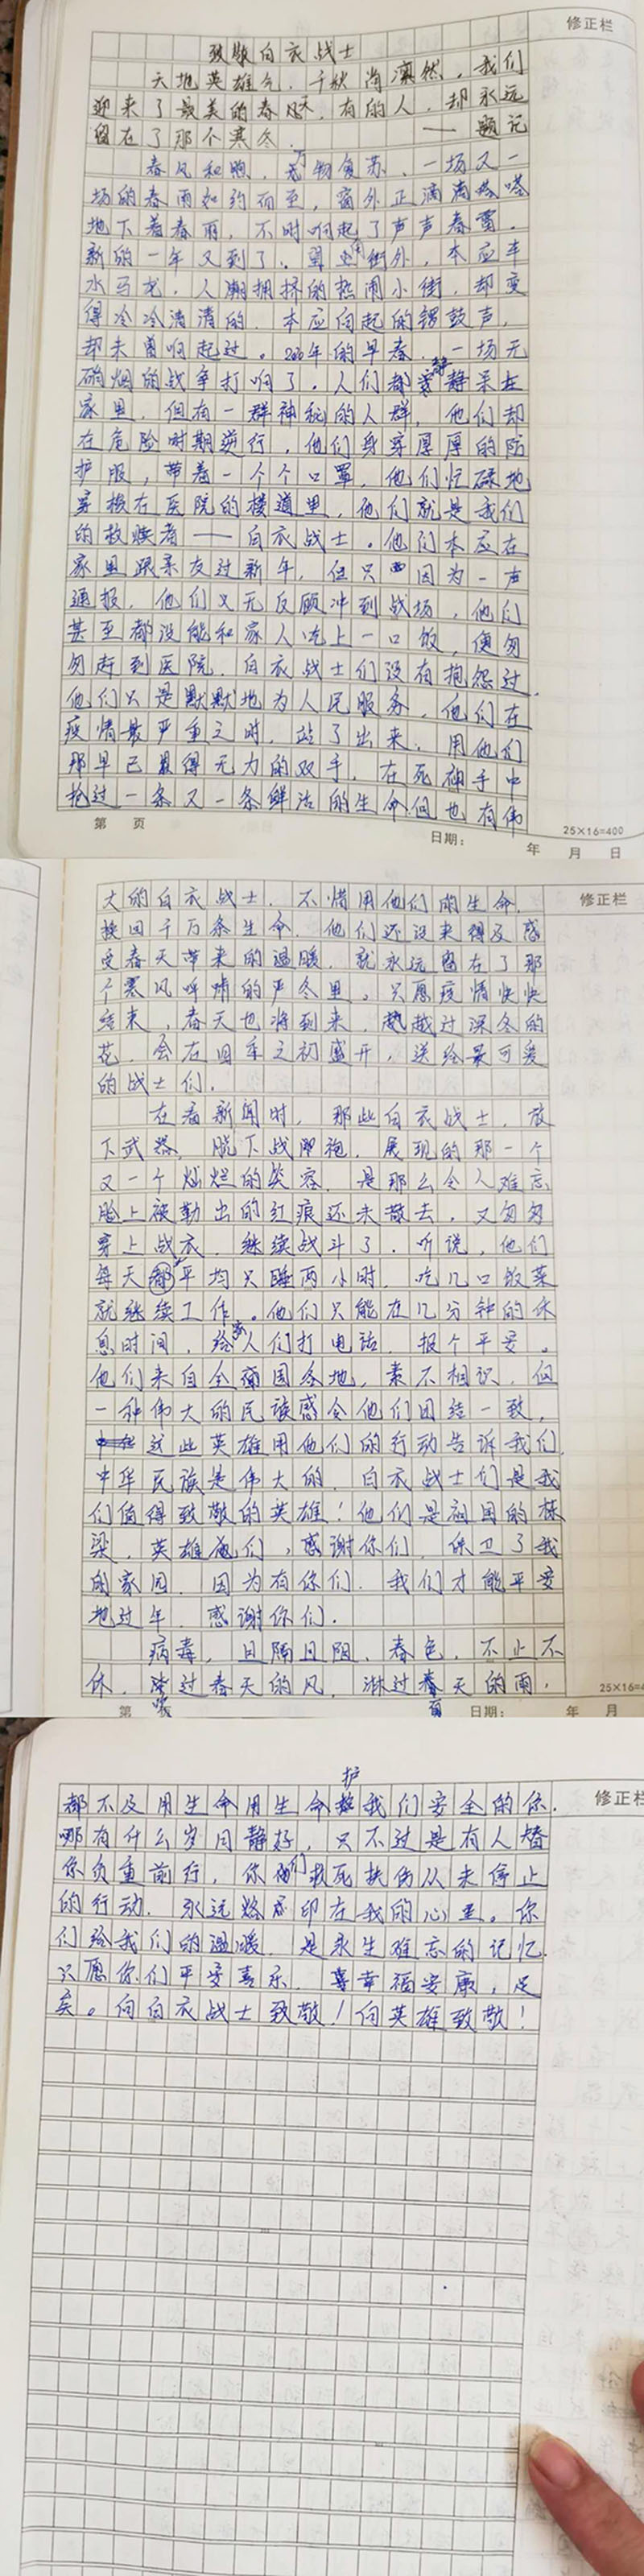 修正栏
致敬白衣战士
天地英雄气，千秋尚凛然，我们
迎来了最美的春天，有的人，却永远
留在了那个寒冬。——题记
春风和煦，万物复苏，一场又一
场的春雨如约而至，窗外正滴滴嗒嗒
地下着春雨，不时响起了声声春雷，
新的一年又到了。街外，本应车
水马龙，人潮拥挤的热闹小街，却变
得冷冷清清的，本应向起的锣鼓声，
却未曾响起过。2020年的早春，一场无
硝烟的战争打响了。人们都静静呆在
家里，但有一群神秘的人群，他们却
在危险时期逆行，他们身穿厚厚的防
护服，带着一个个口罩，他们忙碌地
穿梭在医院的楼道里，他们就是我们
的救援者——白衣战士。他们本应在
家里跟亲友过新年，但只因为一声
通报，他们义无反顾冲到战场，他们
甚至都没能和家人吃上一口饭，便匆
匆赶到医院，白衣战士们没有抱怨过，
他们只是默默地为人民服务，他们在
疫情最严重之时，站了出来，用他们
那早已累得无力的双手，在死神手中
抢过一条又一条鲜活的生命但也有伟
第 页 日期： 年 月 日 25×16=400
修正栏
大的白衣战士，不惜用他们的生命，
换回千万条生命，他们还没来得及感
受春天带来的温暖，就永远留在了那
个寒风呼啸的严冬里。只愿疫情快快
结束，春天也将到来，越过深冬的
花，会在回年之初盛开，送给最可爱
的战士们。
在看新闻时，那些白衣战士，放
下武器，脱下战袍，展现的那一个
又一个灿烂的笑容，是那么令人难忘
脸上被勒出的红痕还未散去，又匆匆
穿上战衣，继续战斗了。听说，他们
每天都平均只睡两小时，吃几口饭菜
就继续工作。他们只能在几分钟的休
息时间，给家人们打电话，报个平安。
他们来自全国各地，素不相识，但
一种伟大的民族感令他们团结一致，
这些英雄用他们的行动告诉我们，
中华民族是伟大的，白衣战士们是我
们值得致敬的英雄！他们是祖国的栋
梁，英雄们，感谢你们，保卫了我
的家园，因为有你们，我们才能平安
地过年，感谢你们。
病毒，且隔且阻，春色，不止不
休，吹过春天的风，淋过春天的雨，
第 页 日期： 年 月 25×16=4
修正栏
都不及用生命用生命护我们安全的你。
哪有什么岁月静好，只不过是有人替
你负重前行，你们救死扶伤从未停止
的行动，永远烙印在我的心里。你
们给我们的温暖，是永生难忘的记忆
只愿你们平安喜乐，幸福安康，足
矣。向白衣战士致敬！向英雄致敬！